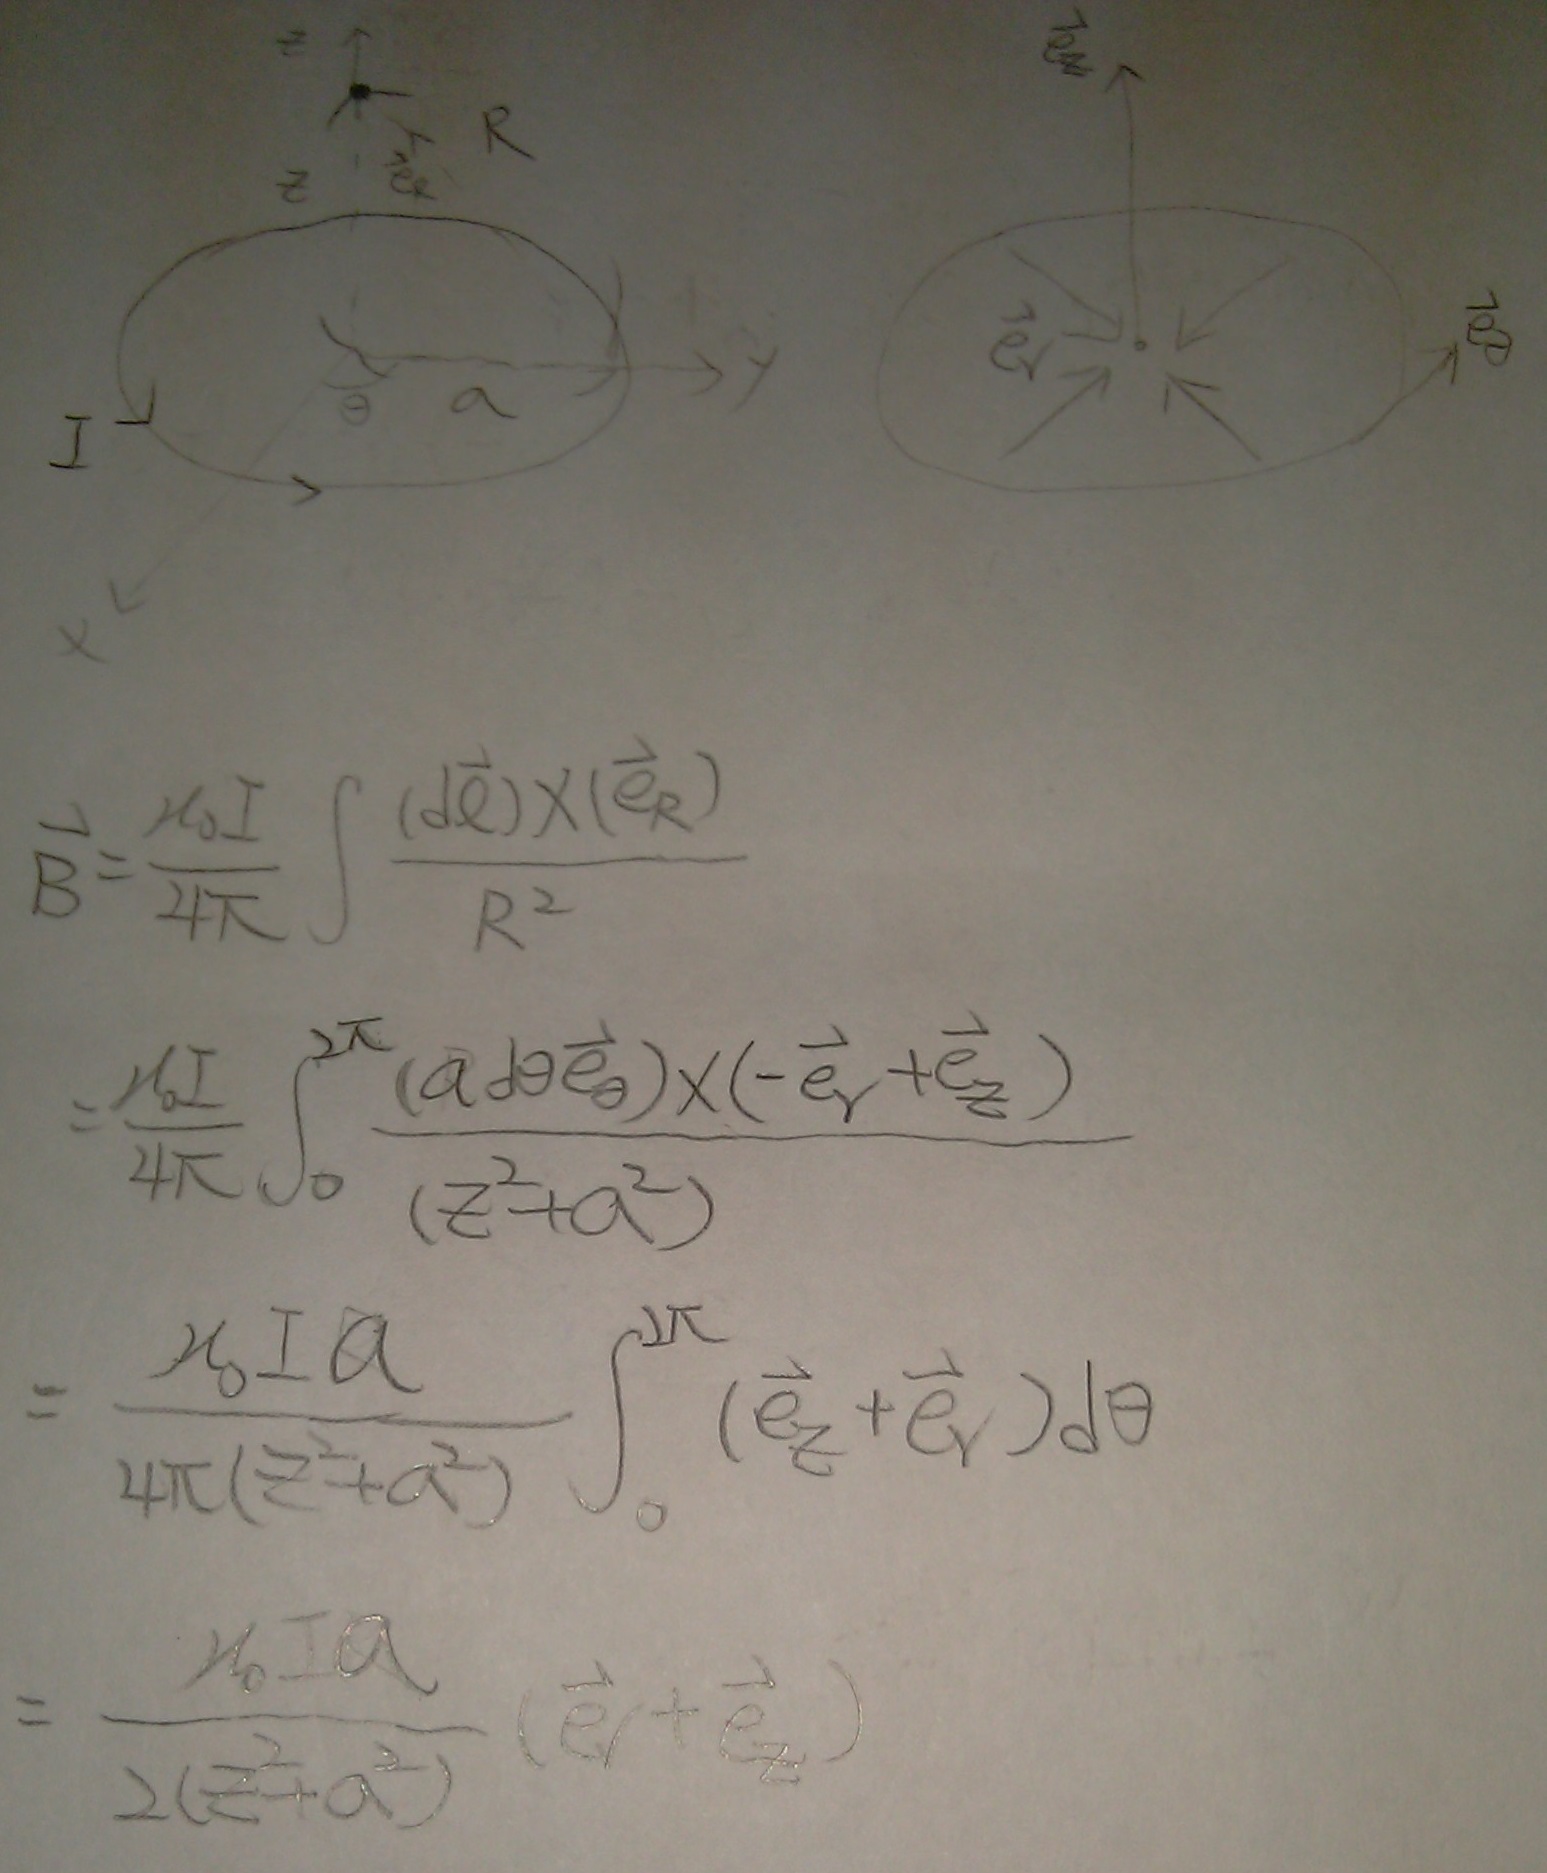 z
R
z e⃗_R
θ a y
I
x
e⃗_z
e⃗_r
e⃗_θ
B⃗ = μ₀I/4π ∫ (dl⃗)×(e⃗_R)/R²
= μ₀I/4π ∫₀^2π (a dθ e⃗_θ)×(-e⃗_r + e⃗_z)/(z²+a²)
= μ₀Ia/4π(z²+a²) ∫₀^2π (e⃗_z + e⃗_r) dθ
= μ₀Ia/2(z²+a²) (e⃗_r + e⃗_z)